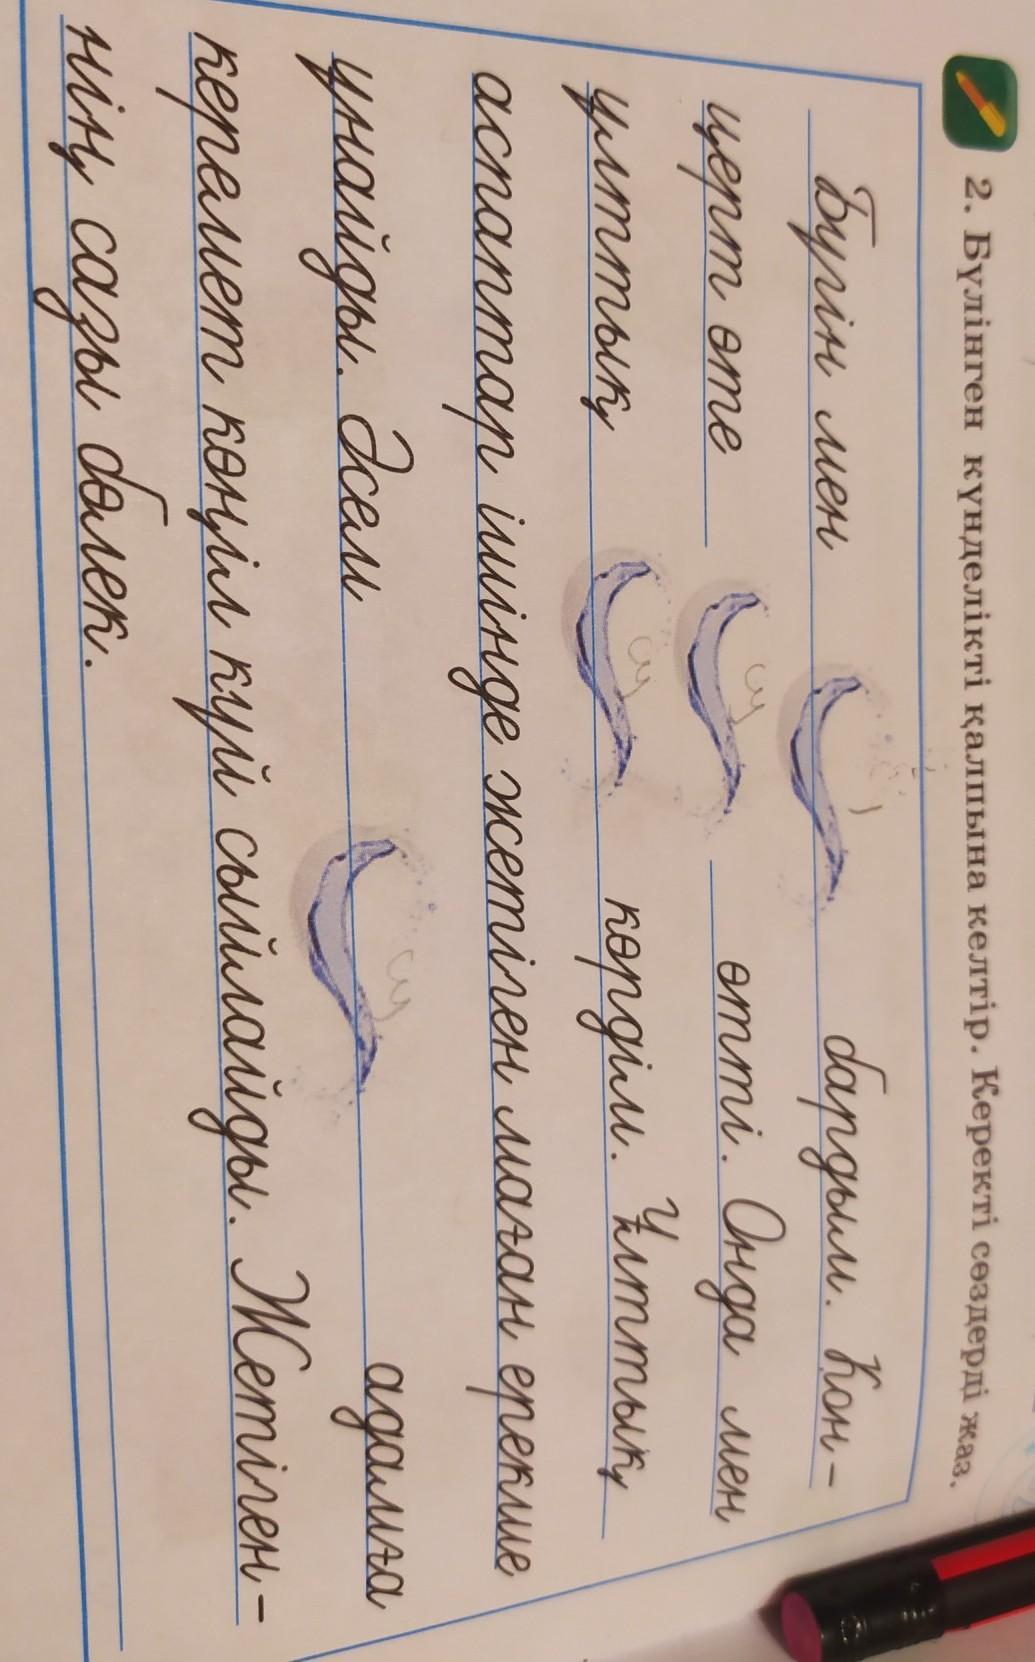 2. Бүлінген күнделікті қалпына келтір. Керекті сөздерді жаз.
Бүгін мен бардым. Кон-
церт өте өтті. Онда мен
ұлттық көрдім. Ұлттық
аспаптар ішінде жетіген маған ерекше
ұнайды. Әсем адамға
керемет көңіл күй сыйлайды. Жетіген-
нің сазы бөлек.